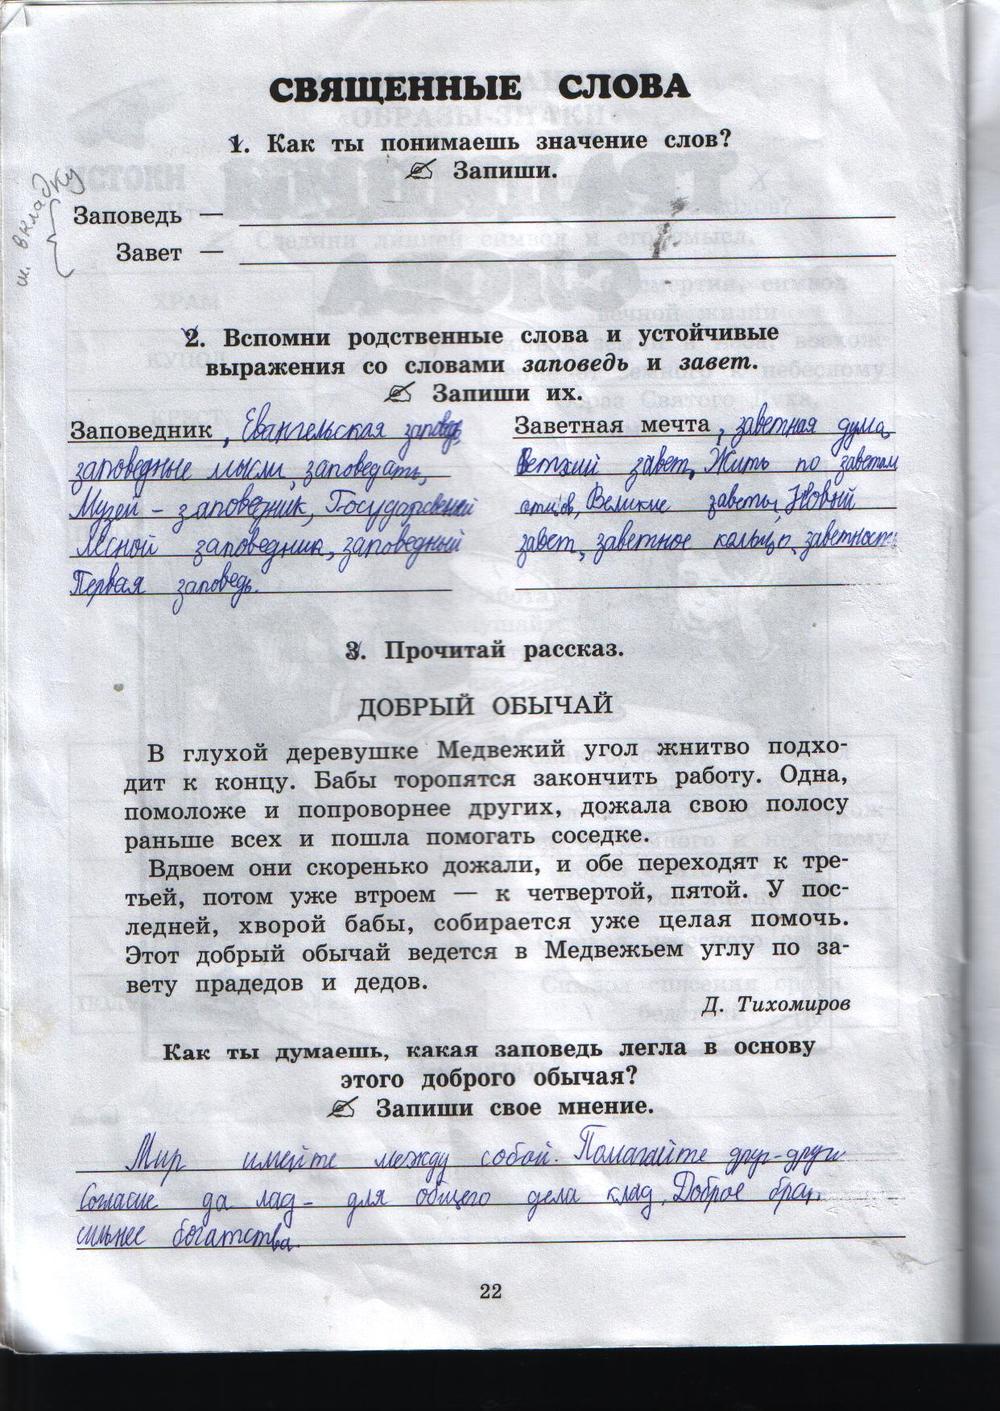 СВЯЩЕННЫЕ СЛОВА
1. Как ты понимаешь значение слов?
Запиши.
см. вкладку
Заповедь —
Завет —
2. Вспомни родственные слова и устойчивые
выражения со словами заповедь и завет.
Запиши их.
Заповедник, Евангельская заповедь
заповедные мысли, заповедать,
Музей - заповедник, Государственный
Лесной заповедник, заповедный
Первая заповедь.
Заветная мечта, заветная дума
Ветхий завет, Жить по заветам
отцов, Великие заветы, Новый
завет, заветное кольцо, заветность
3. Прочитай рассказ.
ДОБРЫЙ ОБЫЧАЙ
В глухой деревушке Медвежий угол жнитво подхо-
дит к концу. Бабы торопятся закончить работу. Одна,
помоложе и попроворнее других, дожала свою полосу
раньше всех и пошла помогать соседке.
Вдвоем они скоренько дожали, и обе переходят к тре-
тьей, потом уже втроем — к четвертой, пятой. У пос-
ледней, хворой бабы, собирается уже целая помочь.
Этот добрый обычай ведется в Медвежьем углу по за-
вету прадедов и дедов.
Д. Тихомиров
Как ты думаешь, какая заповедь легла в основу
этого доброго обычая?
Запиши свое мнение.
Мир имейте между собой. Помагайте друг-другу
Согласие да лад - для общего дела клад. Доброе
сильнее богатства.
22